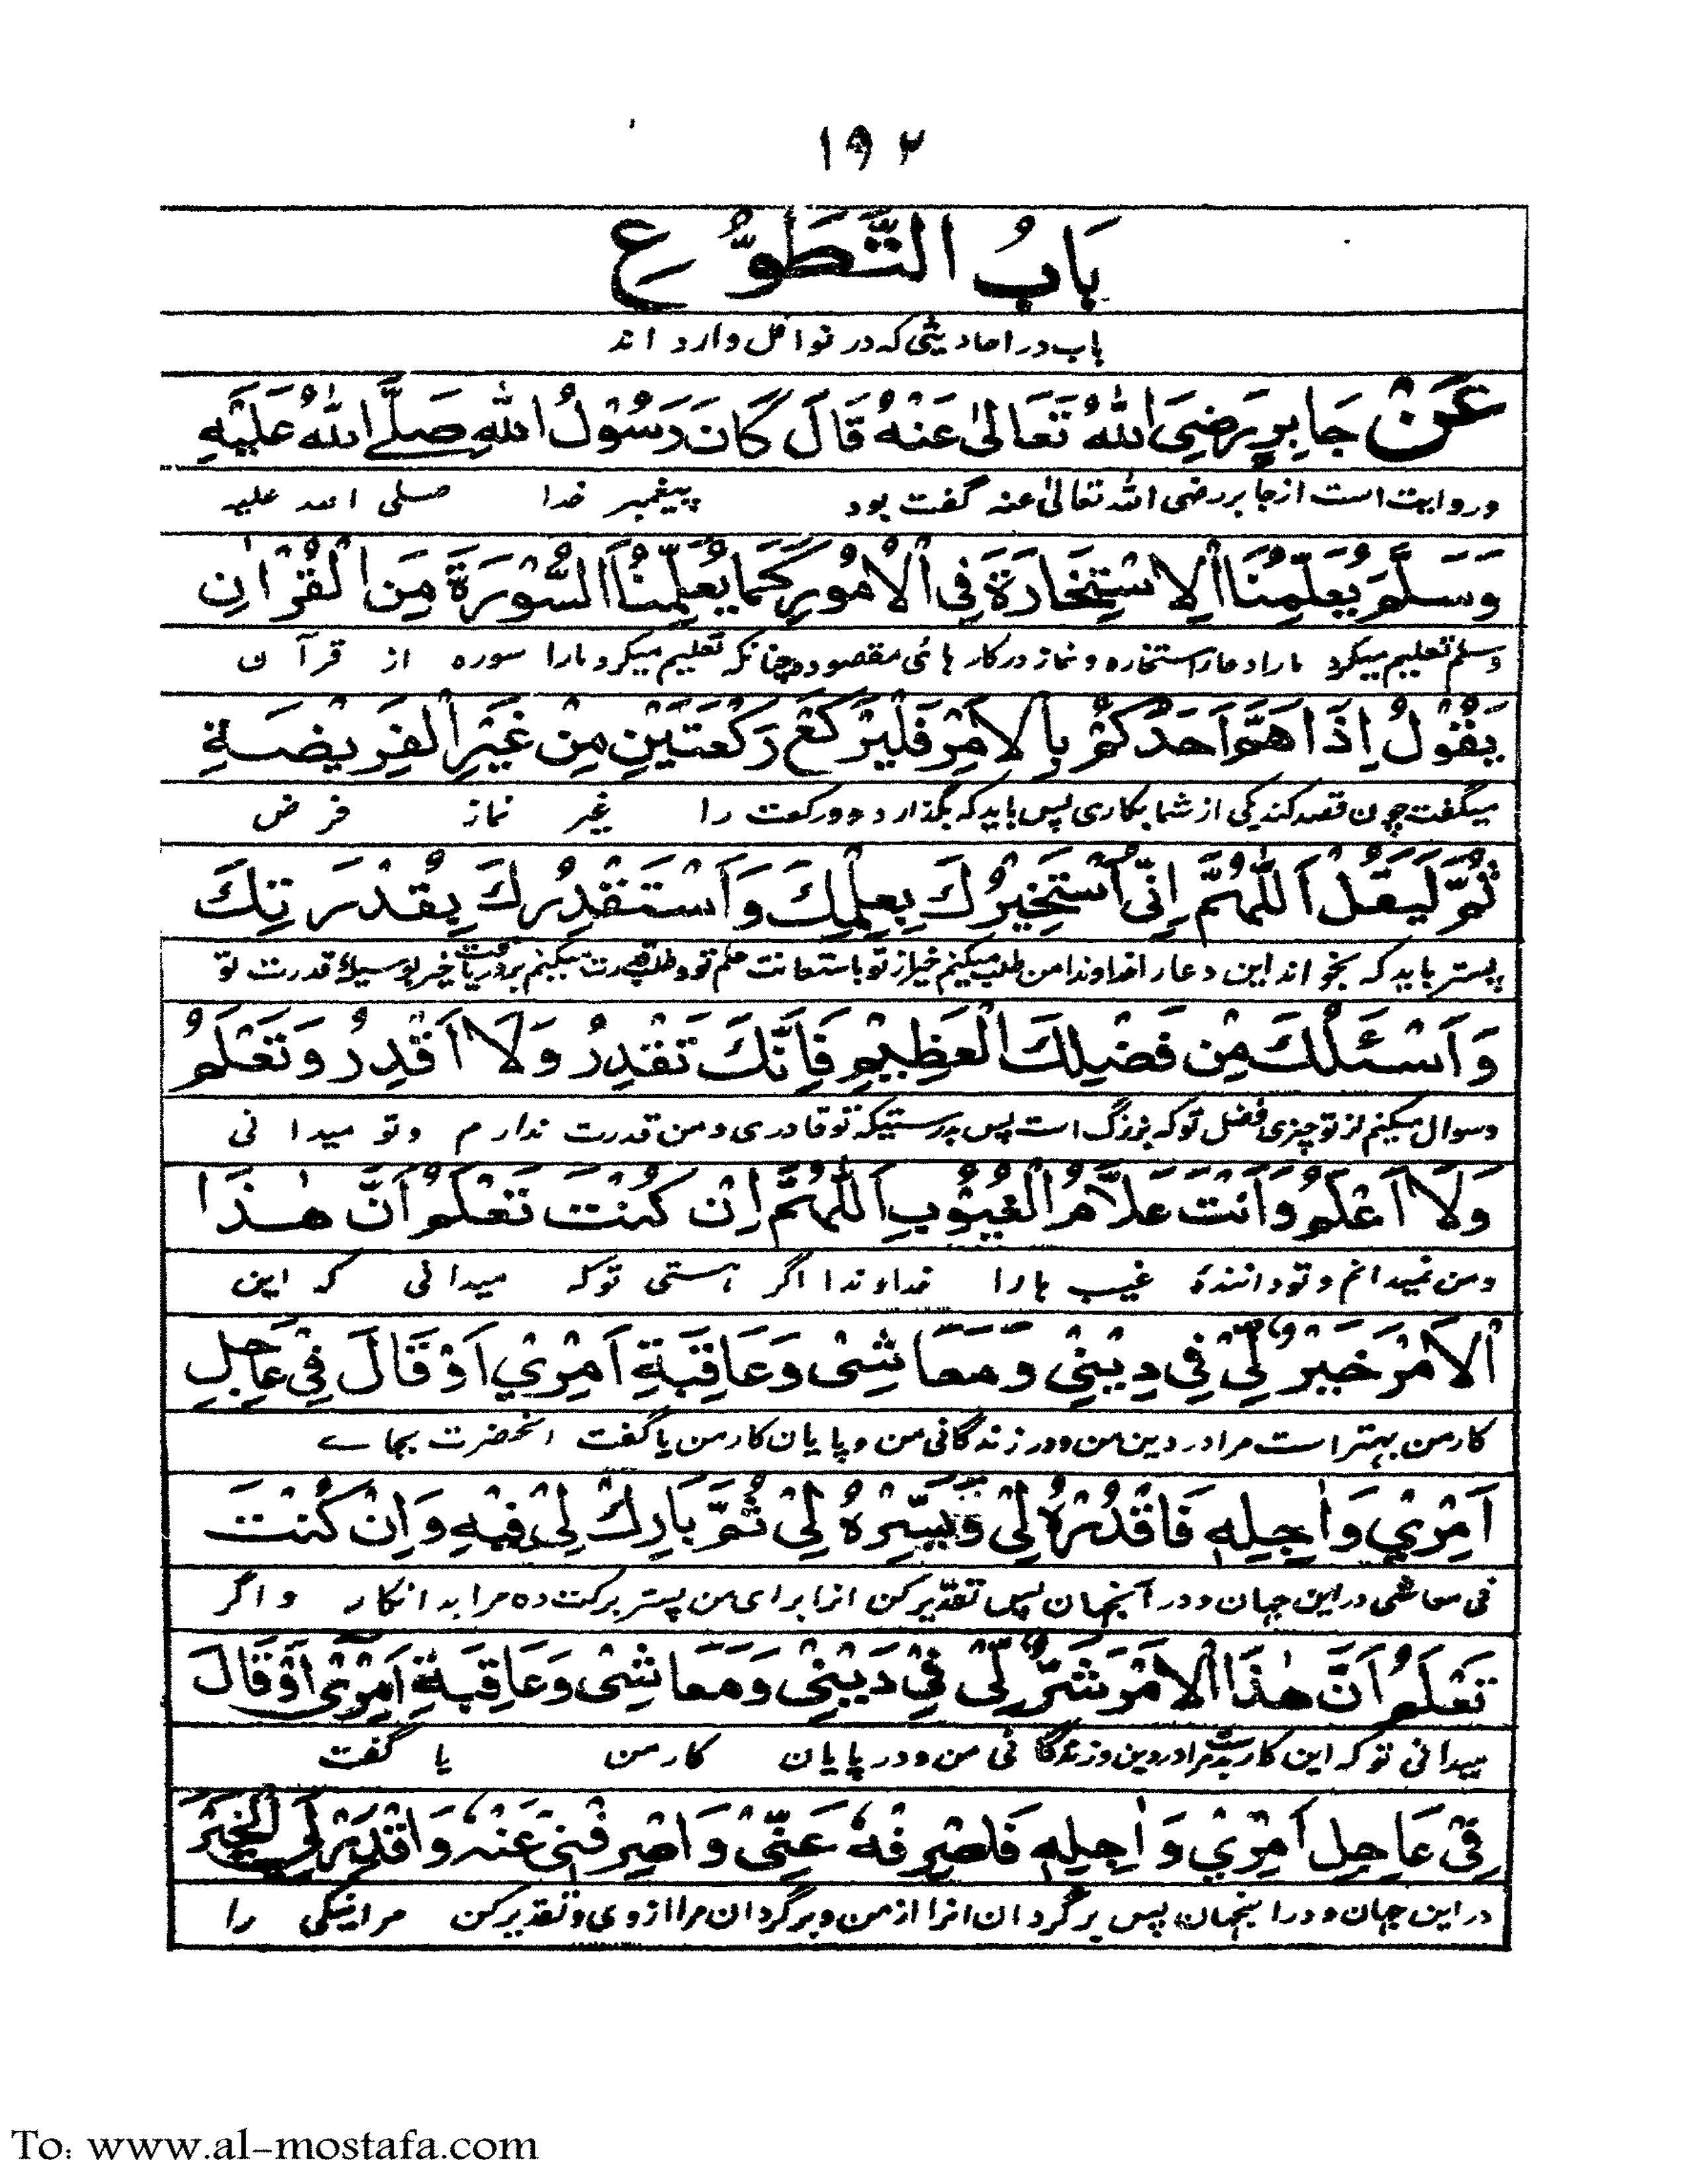 ١٩٢
بَابُ التَّطَوُّعِ
باب در احادیثی که در نوافل وارد اند
عَنْ جَابِرٍ رَضِيَ اللهُ تَعَالىٰ عَنْهُ قَالَ كَانَ رَسُوْلُ اللهِ صَلَّے اللهُ عَلَيْهِ
وروایت است از جابر رضی الله تعالیٰ عنه گفت بود پیغمبر خدا صلی الله علیه
وَسَلَّمَ يُعَلِّمُنَا الْاِسْتِخَارَةَ فِي الْاُمُوْرِ كَمَا يُعَلِّمُنَا السُّوْرَةَ مِنَ الْقُرْاٰنِ
وسلم تعلیم میکرد مارا دعار استخاره و نماز درکار هائی مقصوده چنانکه تعلیم میکرد مارا سوره از قرآن
يَقُوْلُ اِذَا هَمَّ اَحَدُكُمْ بِالْاَمْرِ فَلْيَرْكَعْ رَكْعَتَيْنِ مِنْ غَيْرِ الْفَرِيْضَةِ
میگفت چون قصد کند یکی از شما بکاری پس باید که بگذارد دو رکعت را غیر نماز فرض
ثُمَّ لْيَقُلْ اَللّٰهُمَّ اِنِّيْ اَسْتَخِيْرُكَ بِعِلْمِكَ وَاَسْتَقْدِرُكَ بِقُدْرَتِكَ
پستر باید که بخواند این دعار اخداوندا من طلب میکنم خیر از تو باستعانت علم تو و طلب قدرت میکنم بر دریافت خیر بوسیله قدرت تو
وَاَسْئَلُكَ مِنْ فَضْلِكَ الْعَظِيْمِ فَاِنَّكَ تَقْدِرُ وَلَا اَقْدِرُ وَتَعْلَمُ
وسوال میکنم از تو چیزی فضل تو که بزرگ است پس بدرستیکه تو قادری و من قدرت ندارم و تو میدانی
وَلَا اَعْلَمُ وَاَنْتَ عَلَّامُ الْغُيُوْبِ اَللّٰهُمَّ اِنْ كُنْتَ تَعْلَمُ اَنَّ هٰذَا
و من نمیدانم و تو دانندهٔ غیب ها را خداوندا اگر هستی تو که میدانی که این
الْاَمْرَ خَيْرٌ لِّيْ فِي دِيْنِيْ وَمَعَاشِيْ وَعَاقِبَةِ اَمْرِيْ اَوْ قَالَ فِيْ عَاجِلِ
کار من بهتر است مرا در دین من و در زندگانی من و پایان کار من یا گفت انحضرت بجاے
اَمْرِيْ وَاٰجِلِهٖ فَاقْدُرْهُ لِيْ وَيَسِّرْهُ لِيْ ثُمَّ بَارِكْ لِيْ فِيْهِ وَاِنْ كُنْتَ
فی معاشی در این جهان و در آنجهان پس تقدیر کن انرا برای من پستر برکت ده مرا بدانکار و اگر
تَعْلَمُ اَنَّ هٰذَا الْاَمْرَ شَرٌّ لِّيْ فِيْ دِيْنِيْ وَمَعَاشِيْ وَعَاقِبَةِ اَمْرِيْ اَوْ قَالَ
میدانی تو که این کار بدست مرا در دین و زندگانی من و در پایان کار من یا گفت
فِيْ عَاجِلِ اَمْرِيْ وَاٰجِلِهٖ فَاصْرِفْهُ عَنِّيْ وَاصْرِفْنِيْ عَنْهُ وَاقْدُرْ لِيَ الْخَيْرَ
در این جهان و در انجهان پس برگردان انرا از من و برگردان مرا از وی و تقدیر کن مرا نیکی را
To: www.al-mostafa.com